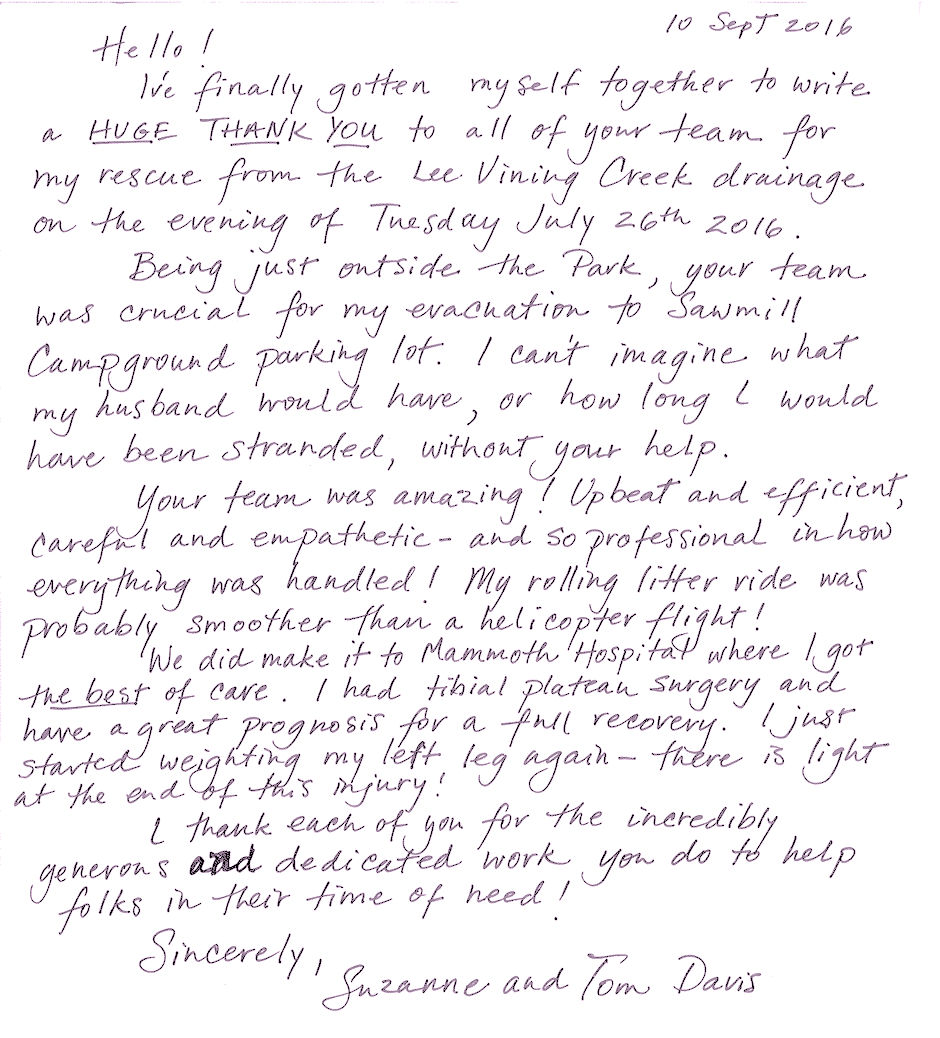 10 Sept 2016
Hello!
I've finally gotten myself together to write
a HUGE THANK YOU to all of your team for
my rescue from the Lee Vining Creek drainage
on the evening of Tuesday July 26th 2016.
Being just outside the Park, your team
was crucial for my evacuation to Sawmill
Campground parking lot. I can't imagine what
my husband would have, or how long I would
have been stranded, without your help.
Your team was amazing! Upbeat and efficient,
careful and empathetic - and so professional in how
everything was handled! My rolling litter ride was
probably smoother than a helicopter flight!
We did make it to Mammoth Hospital where I got
the best of care. I had tibial plateau surgery and
have a great prognosis for a full recovery. I just
started weighting my left leg again - there is light
at the end of this injury!
I thank each of you for the incredibly
generous and dedicated work you do to help
folks in their time of need!
Sincerely,
Suzanne and Tom Davis